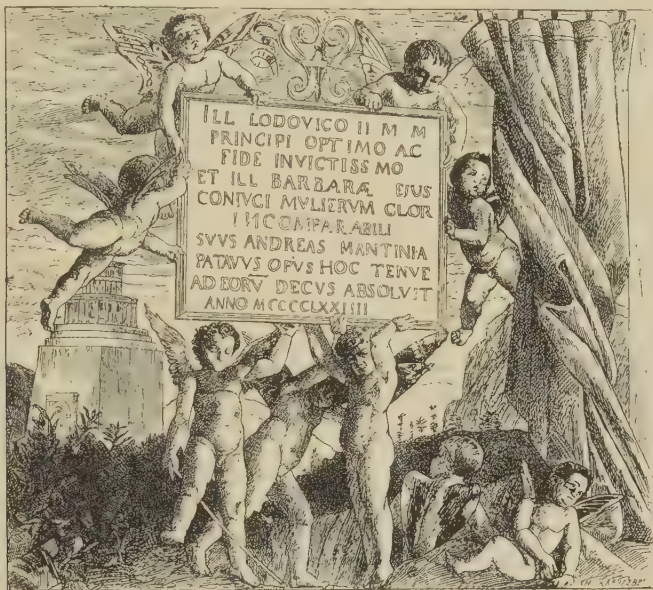 ILL LODOVICO II M M
PRINCIPI OPTIMO AC
FIDE INVICTISS MO
ET ILL BARBARÆ EJUS
CONIUGI MVLIERVM GLOR
INCOMPARABILI
SVVS ANDREAS MANTINIA
PATAVVS OPVS HOC TENVE
AD EORV DECVS ABSOLVIT
ANNO MCCCCLXXIIII